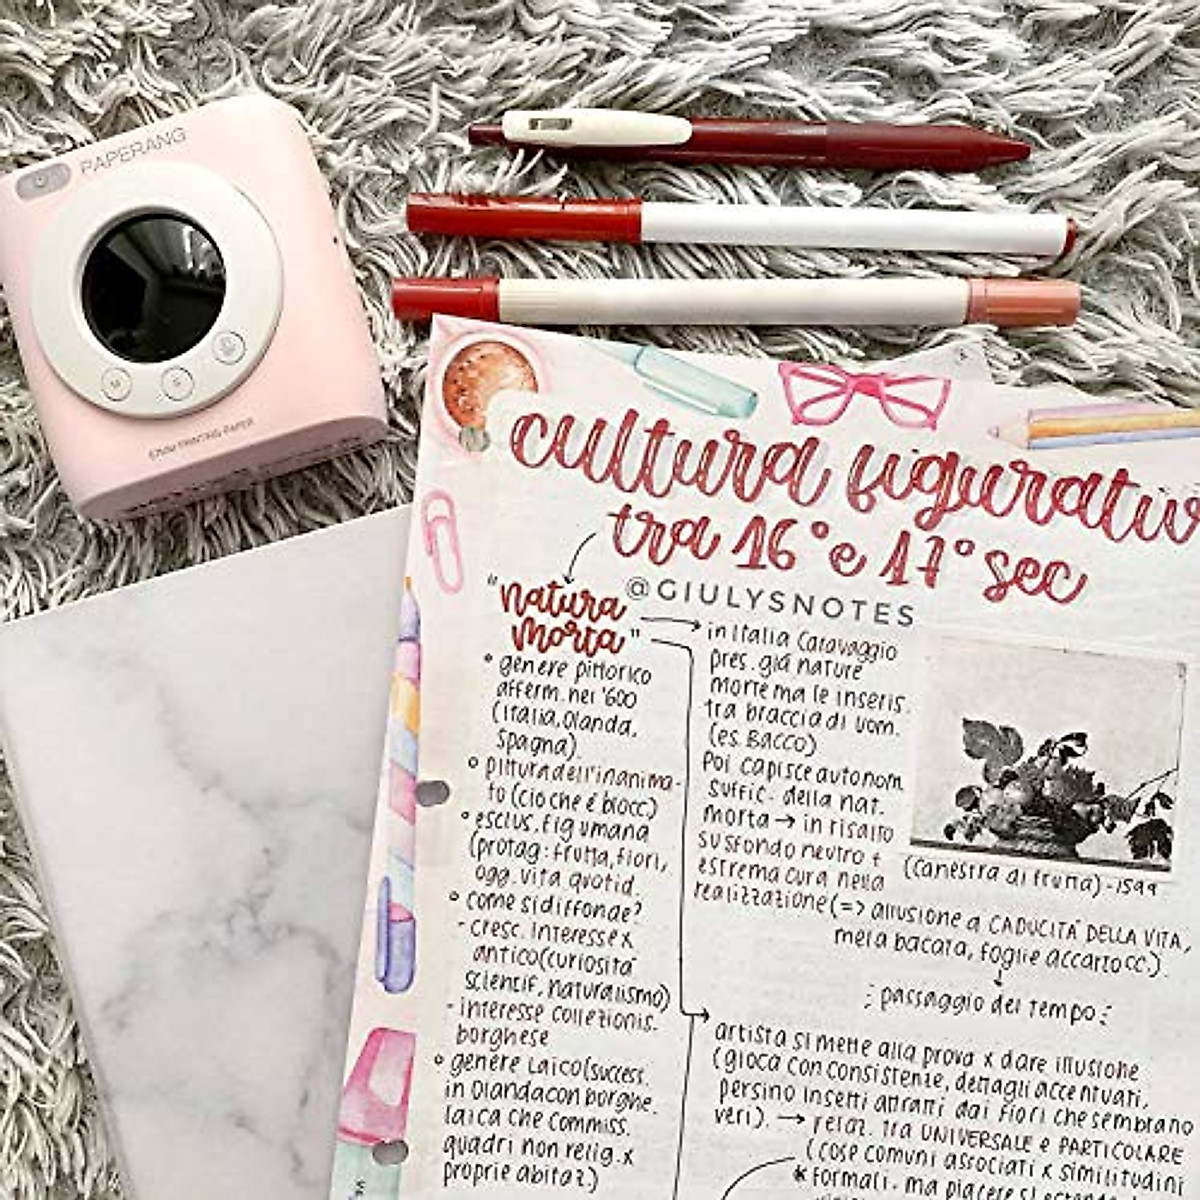 PAPERANG
57MM PRINTING PAPER
cultura figurativ
tra 16° e 17° sec
@GIULYSNOTES
"natura
morta"
° genere pittorico
afferm. nel '600
(Italia, Olanda,
Spagna).
° pittura dell'inanima-
to (ciò che è blocc)
° esclus. fig umana
(protag: frutta, fiori,
ogg. vita quotid.
° come si diffonde?
- cresc. interesse x
antico (curiosità
scientif, naturalismo)
- interesse collezionis.
borghese
° genere laico (success.
in Olanda con borghe.
laica che commiss.
quadri non relig. x
proprie abitaz.)
in Italia Caravaggio
pres. già nature
morte ma le inseris.
tra braccia di uom.
(es. BACCO)
Poi capisce autonom.
suffic. della nat.
morta → in risalto
su sfondo neutro +
estrema cura nella
realizzazione (=> allusione a CADUCITÀ DELLA VITA,
mela bacata, foglie accartocc).
(Canestra di frutta) - 1599
passaggio del tempo
artista si mette alla prova x dare illusione
(gioca con consistenze, dettagli accentuati,
persino insetti attratti dai fiori che sembrano
veri). → relaz. tra UNIVERSALE e PARTICOLARE
(cose comuni associati x similitudini
* formali, ma piacere